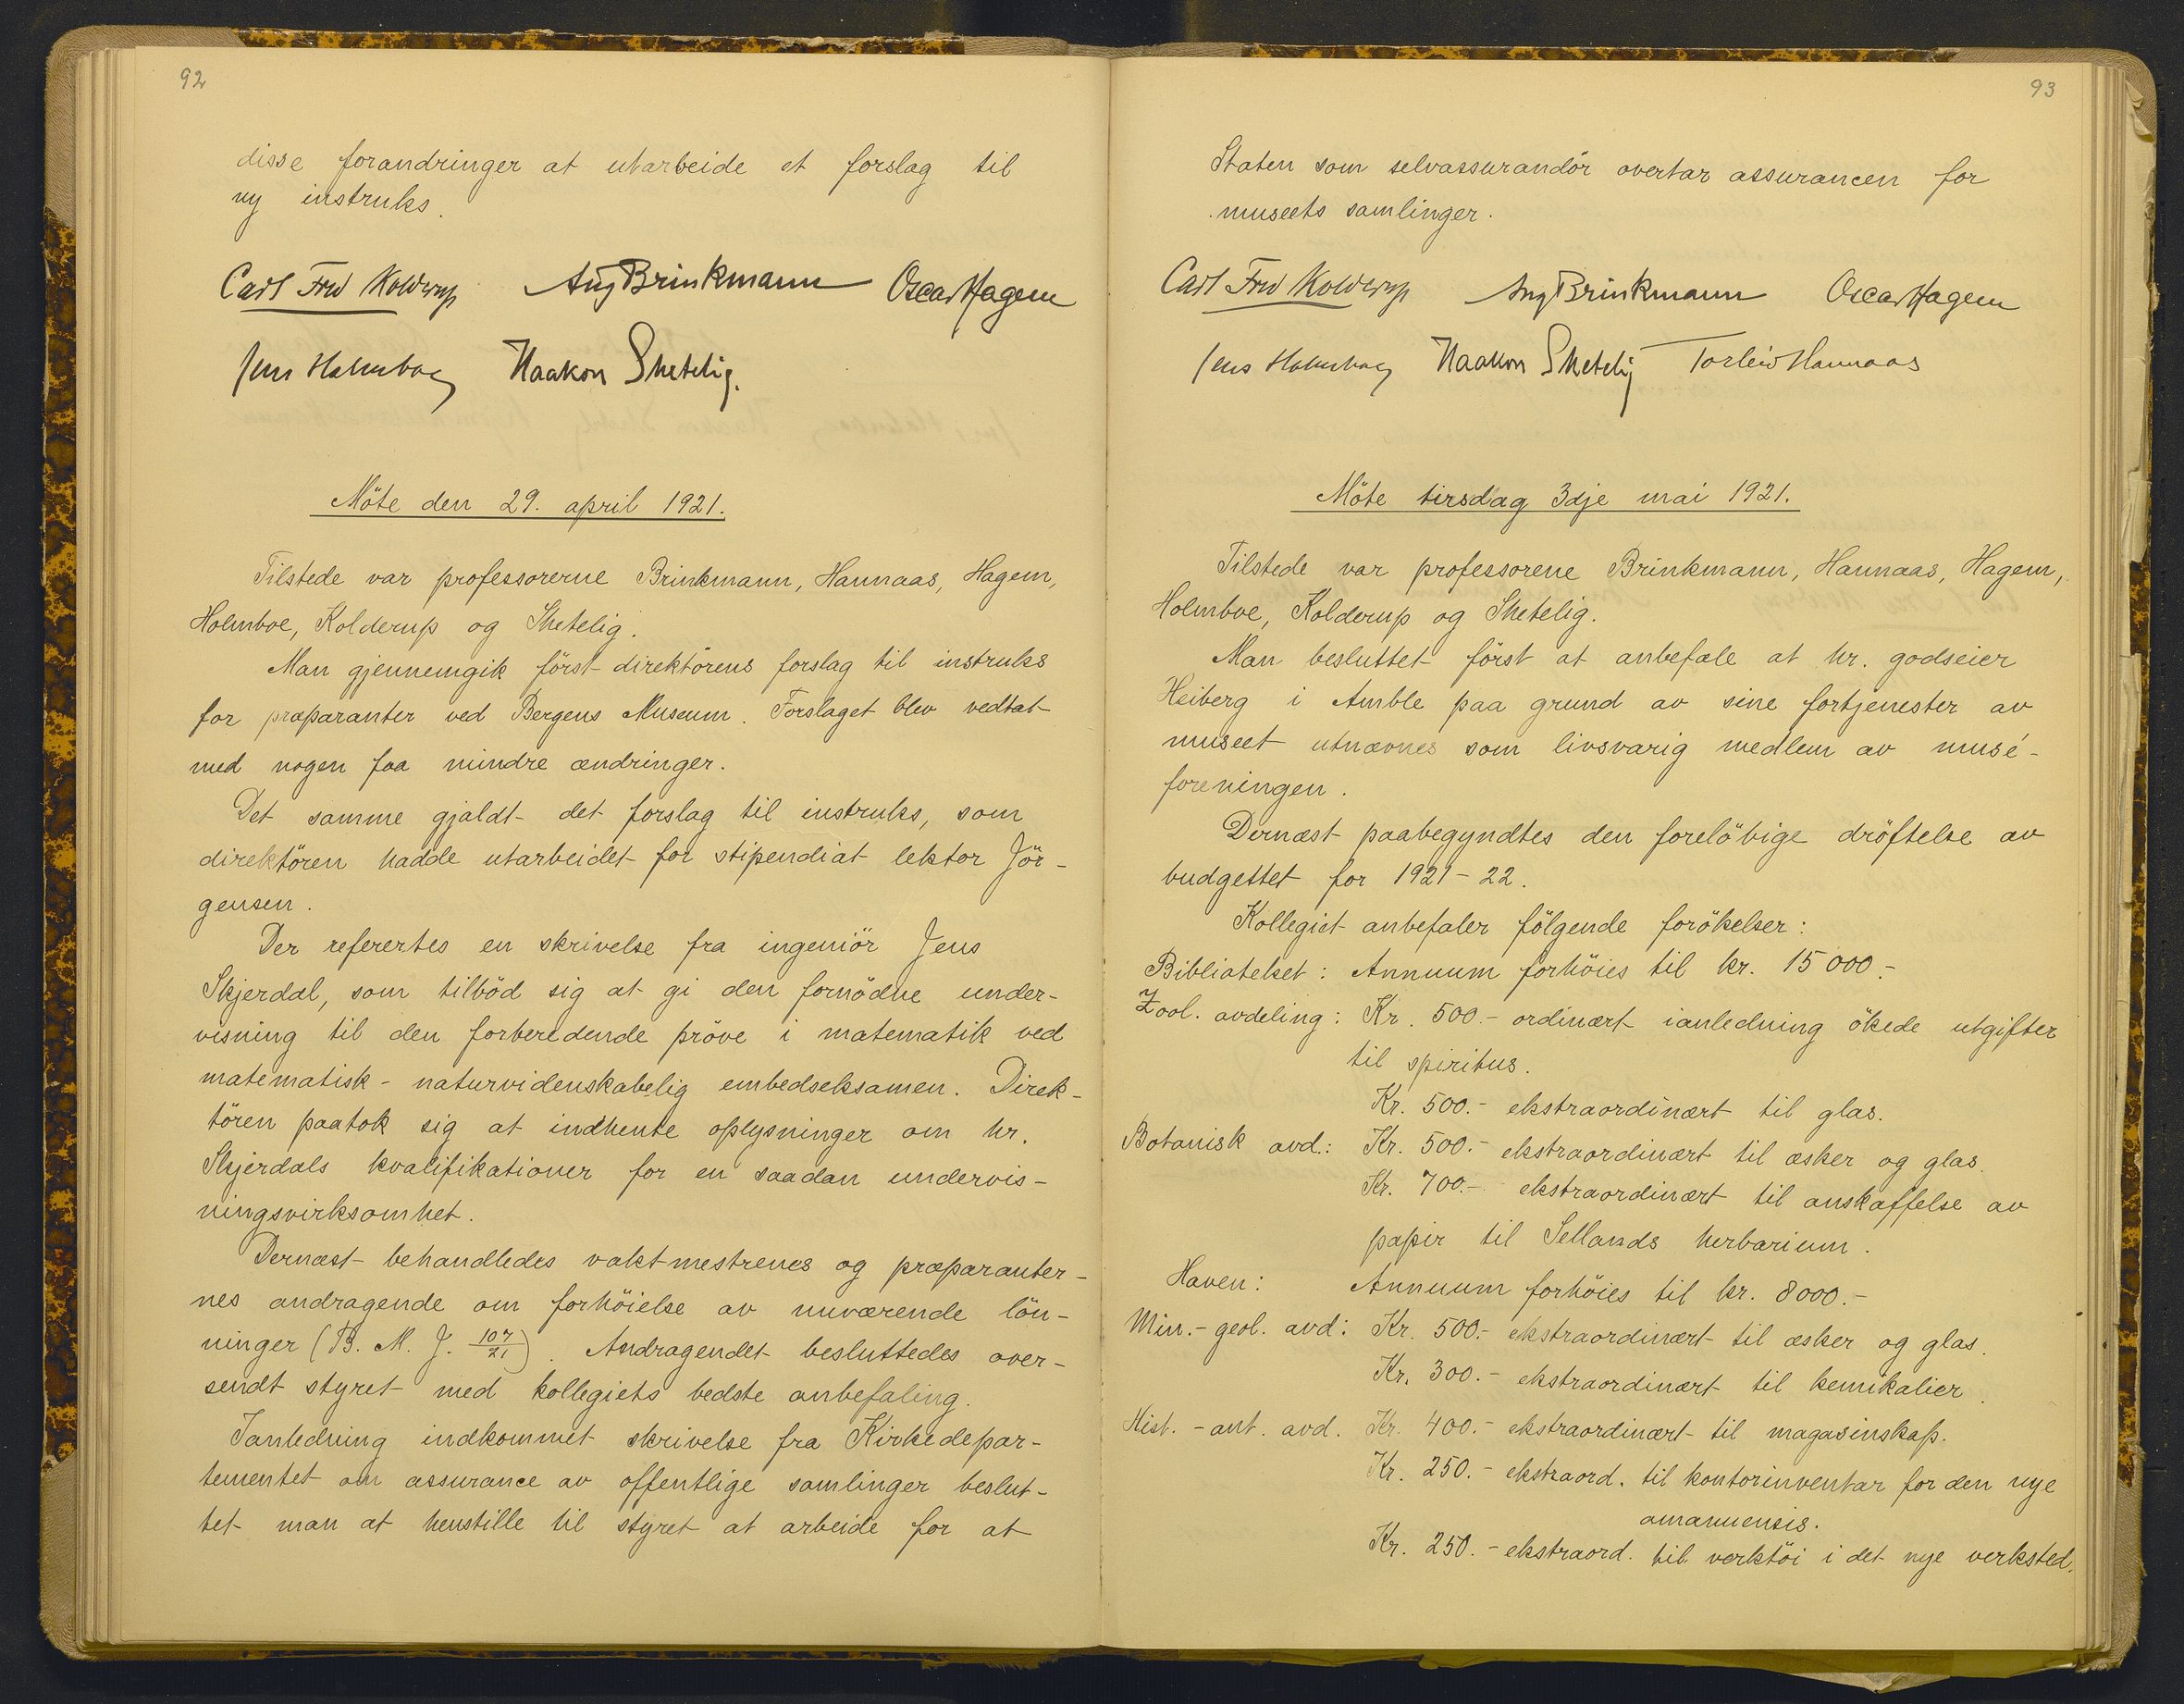 92
disse forandringer at utarbeide et forslag til
ny instruks.
Carl Fred Kolderup Aug Brinkmann Oscar Hagem
Jens Holmboe Haakon Shetelig.
Möte den 29. april 1921.
Tilstede var professorerne Brinkmann, Hannaas, Hagem,
Holmboe, Kolderup og Shetelig.
Man gjennemgik först direktörens forslag til instruks
for præparanter ved Bergens Museum. Forslaget blev vedtat
med nogen faa mindre ændringer.
Det samme gjaldt det forslag til instruks, som
direktören hadde utarbeidet for stipendiat lektor Jör-
gensen.
Der refertes en skrivelse fra ingeniör Jens
Skjerdal, som tilböd sig at gi den fornödne under-
visning til den forberedende pröve i matematik ved
matematisk-naturvidenskabelig embedseksamen. Direk-
tören paatok sig at indhente oplysninger om hr.
Skjerdals kvalifikationer for en saadan undervis-
ningsvirksomhet.
Dernæst behandledes vaktmestrenes og præparanter-
nes andragende om forhöielse av nuværende lön-
ninger (B. M. J. 107/21). Andragendet besluttedes over-
sendt styret med kollegiets bedste anbefaling.
Ianledning indkommet skrivelse fra Kirkedepar-
tementet om assurance av offentlige samlinger beslut-
tet man at henstille til styret at arbeide for at
93
Staten som selvassurandör overtar assurancen for
museets samlinger.
Carl Fred Kolderup Aug Brinkmann Oscar Hagem
Jens Holmboe Haakon Shetelig Torleiv Hannaas
Möte tirsdag 3dje mai 1921.
Tilstede var professorene Brinkmann, Hannaas, Hagem,
Holmboe, Kolderup og Shetelig.
Man besluttet först at anbefale at hr. godseier
Heiberg i Amble paa grund av sine fortjenester av
museet utnævnes som livsvarig medlem av musé-
foreningen.
Dernæst paabegyndtes den forelöbige dröftelse av
budgettet for 1921-22.
Kollegiet anbefaler fölgende forökelser:
Biblioteket: Annuum forhöies til kr. 15 000.-
Zool. avdeling: Kr. 500.- ordinært ianledning ökede utgifter
til spiritus.
Kr. 500.- ekstraordinært til glas.
Botanisk avd.: Kr. 500.- ekstraordinært til æsker og glas.
Kr. 700.- ekstraordinært til anskaffelse av
papir til Sellands herbarium.
Haven: Annuum forhöies til kr. 8000.-
Min.-geol. avd: Kr. 500.- ekstraordinært til æsker og glas.
Kr. 300.- ekstraordinært til kemikalier.
Hist.-ant. avd. Kr. 400.- ekstraordinært til magasinskap.
Kr. 250.- ekstraord. til kontorinventar for den nye
amanuensis.
Kr. 250.- ekstraord. til verktöi i det nye verksted.